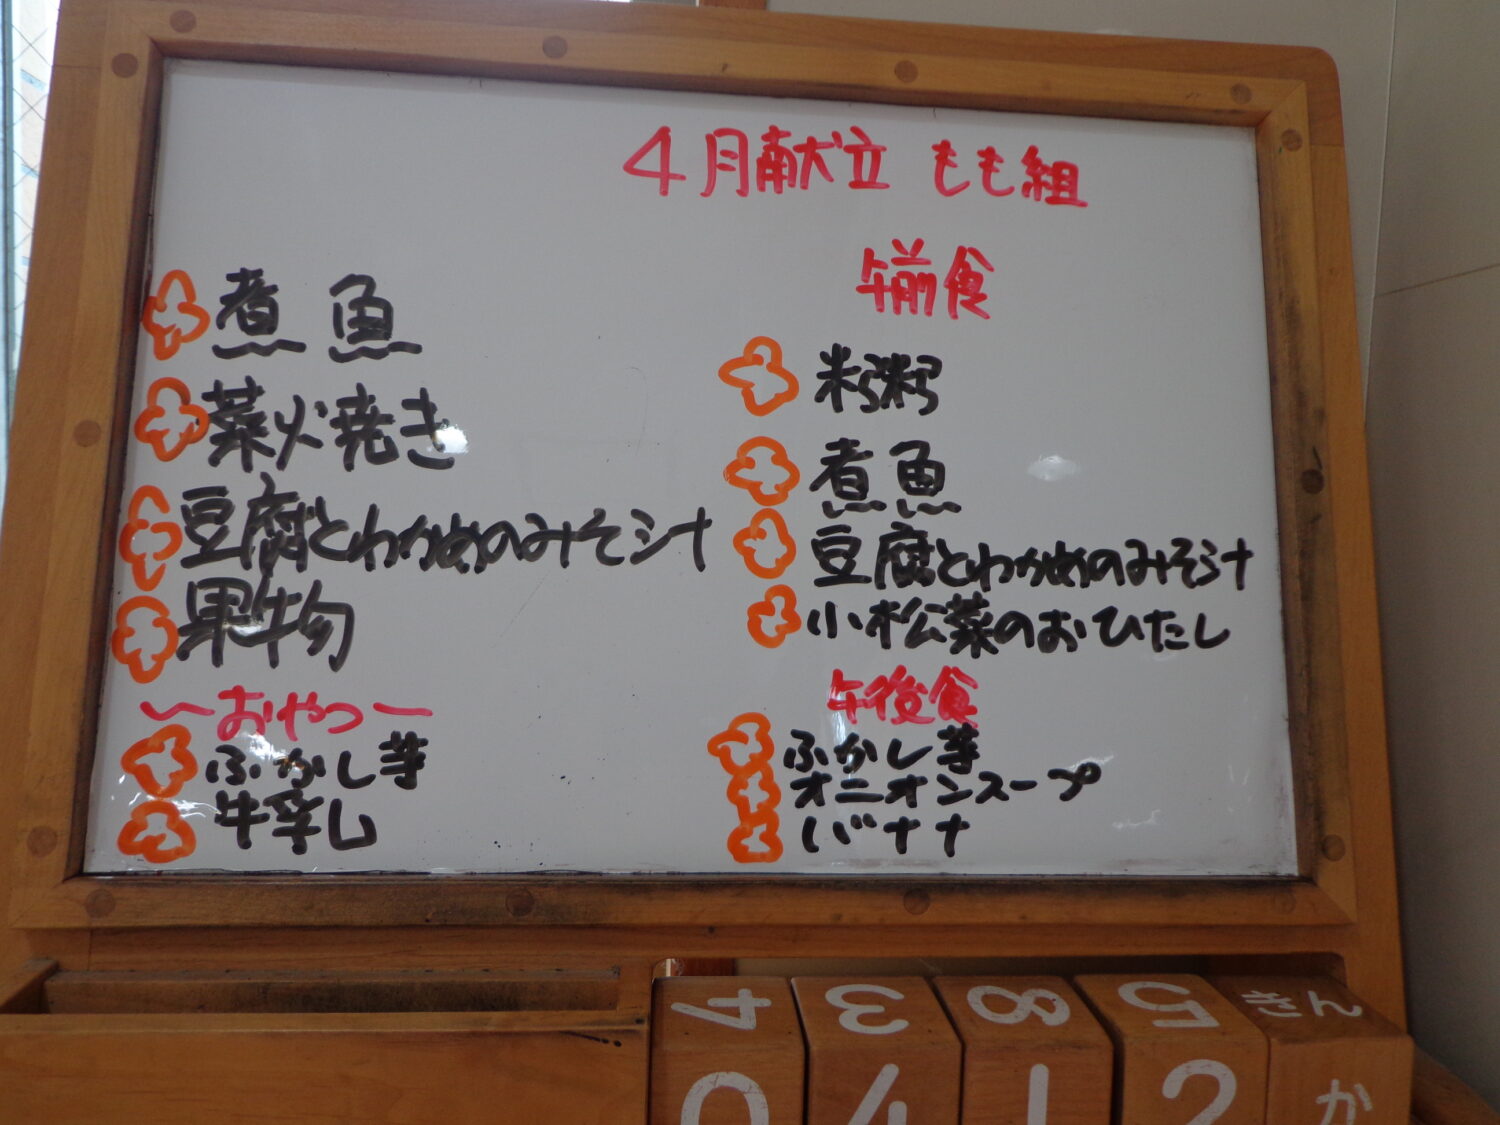 4月献立 もも組
煮魚
菜火焼き
豆腐とわかめのみそ汁
果物
〜おやつー
ふかし芋
牛乳
午前食
米粥
煮魚
豆腐とわかめのみそ汁
小松菜のおひたし
午後食
ふかし芋
オニオンスープ
バナナ
4 3 8 5 きん
0 4 1 2 か